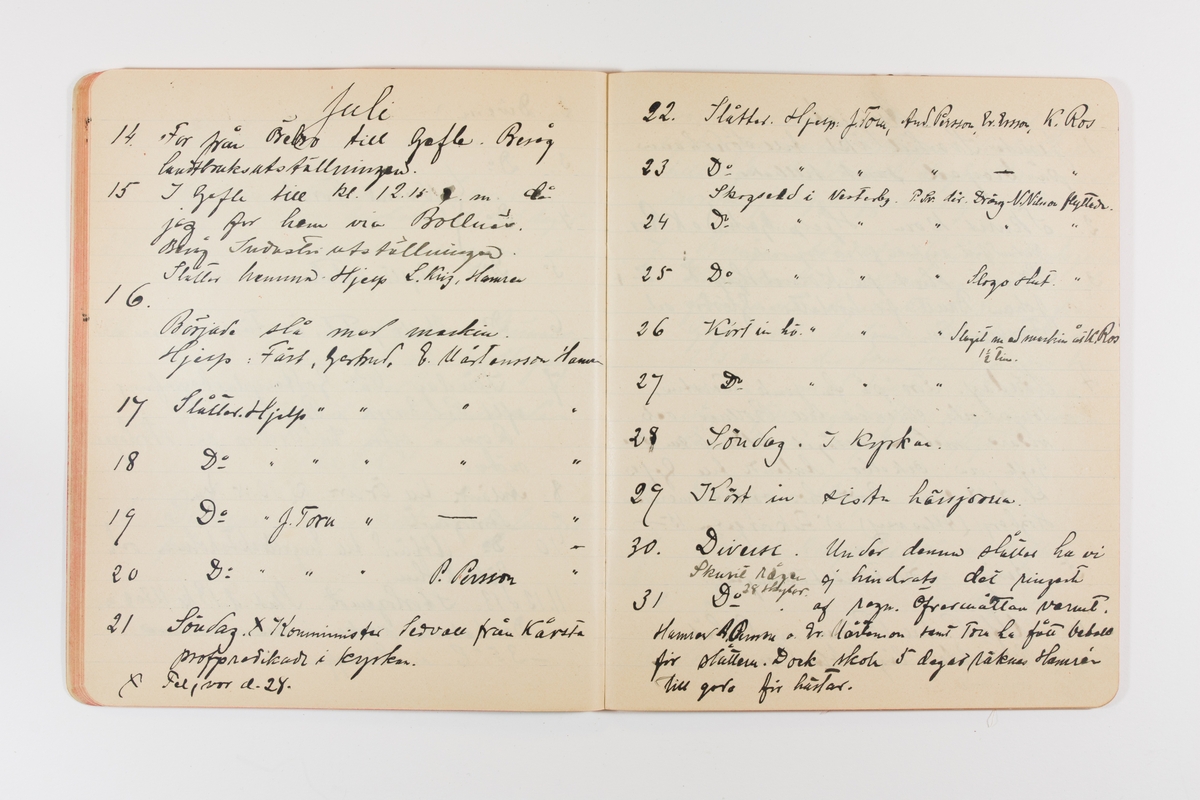 Juli
14. For från Örebro till Gefle. Besåg
landtbruksutställningen.
15 I Gefle till kl. 12.15 e. m. då
jag for hem via Bollnäs.
Besåg Industriutställningen.
Slåtter hemma. Hjelp L. Krig, Hamrén
16.
Började slå med maskin.
Hjelp: Färt, Gertrud, E. Mårtensson Hamrén
17 Slåtter. Hjelp " " " "
18 Do " " " " "
19 Do " J. Torn " — "
20 Do " " " P. Persson "
21 Söndag. X Komminister Sedvall från Kårsta
profpredikade i kyrkan.
X Fel, var d. 28.
22. Slåtter. Hjelp: J. Torn, And. Persson, Er. Ersson, K. Ros
23 Do " " " — "
Skogseld i Vesterby. Dräng N. Nilsson flyttade.
24 Do " " " " "
25 Do " " " Slogo slut. "
26 Kört in hö. " " " Slagit med maskin åt K. Ros
1½ tim.
27 Do " " " " "
28 Söndag. I kyrkan.
29 Kört in sista hässjorna.
30. Diverse. Under denna slåtter ha vi
Skurit rågen ej hindrats det ringaste
28 skylar.
31 Do " af regn. Öfvermåttan varmt.
Hamrén P. Persson o. Er. Mårtenson samt Torn ha fått betalt
för slåttern. Dock skola 5 dagar räknas Hamrén
till godo för hästar.